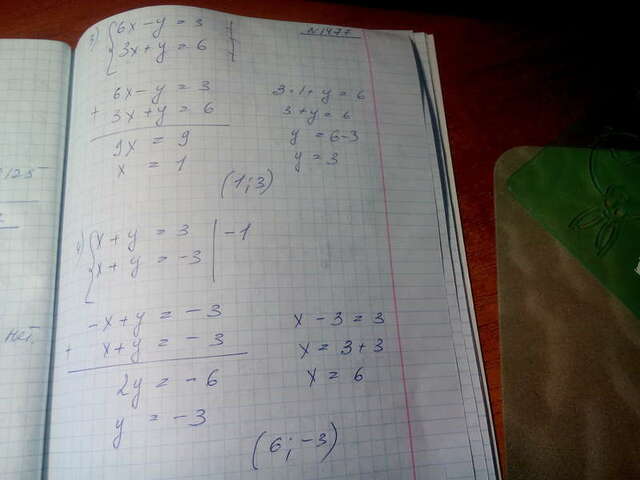 N1477
3) { 6x - y = 3
3x + y = 6
6x - y = 3
+ 3x + y = 6
9x = 9
x = 1
3 · 1 + y = 6
3 + y = 6
y = 6 - 3
y = 3
(1; 3)
4) { x + y = 3 | -1
x + y = -3
-x + y = -3
+ x + y = -3
2y = -6
y = -3
x - 3 = 3
x = 3 + 3
x = 6
(6; -3)
125
нет.